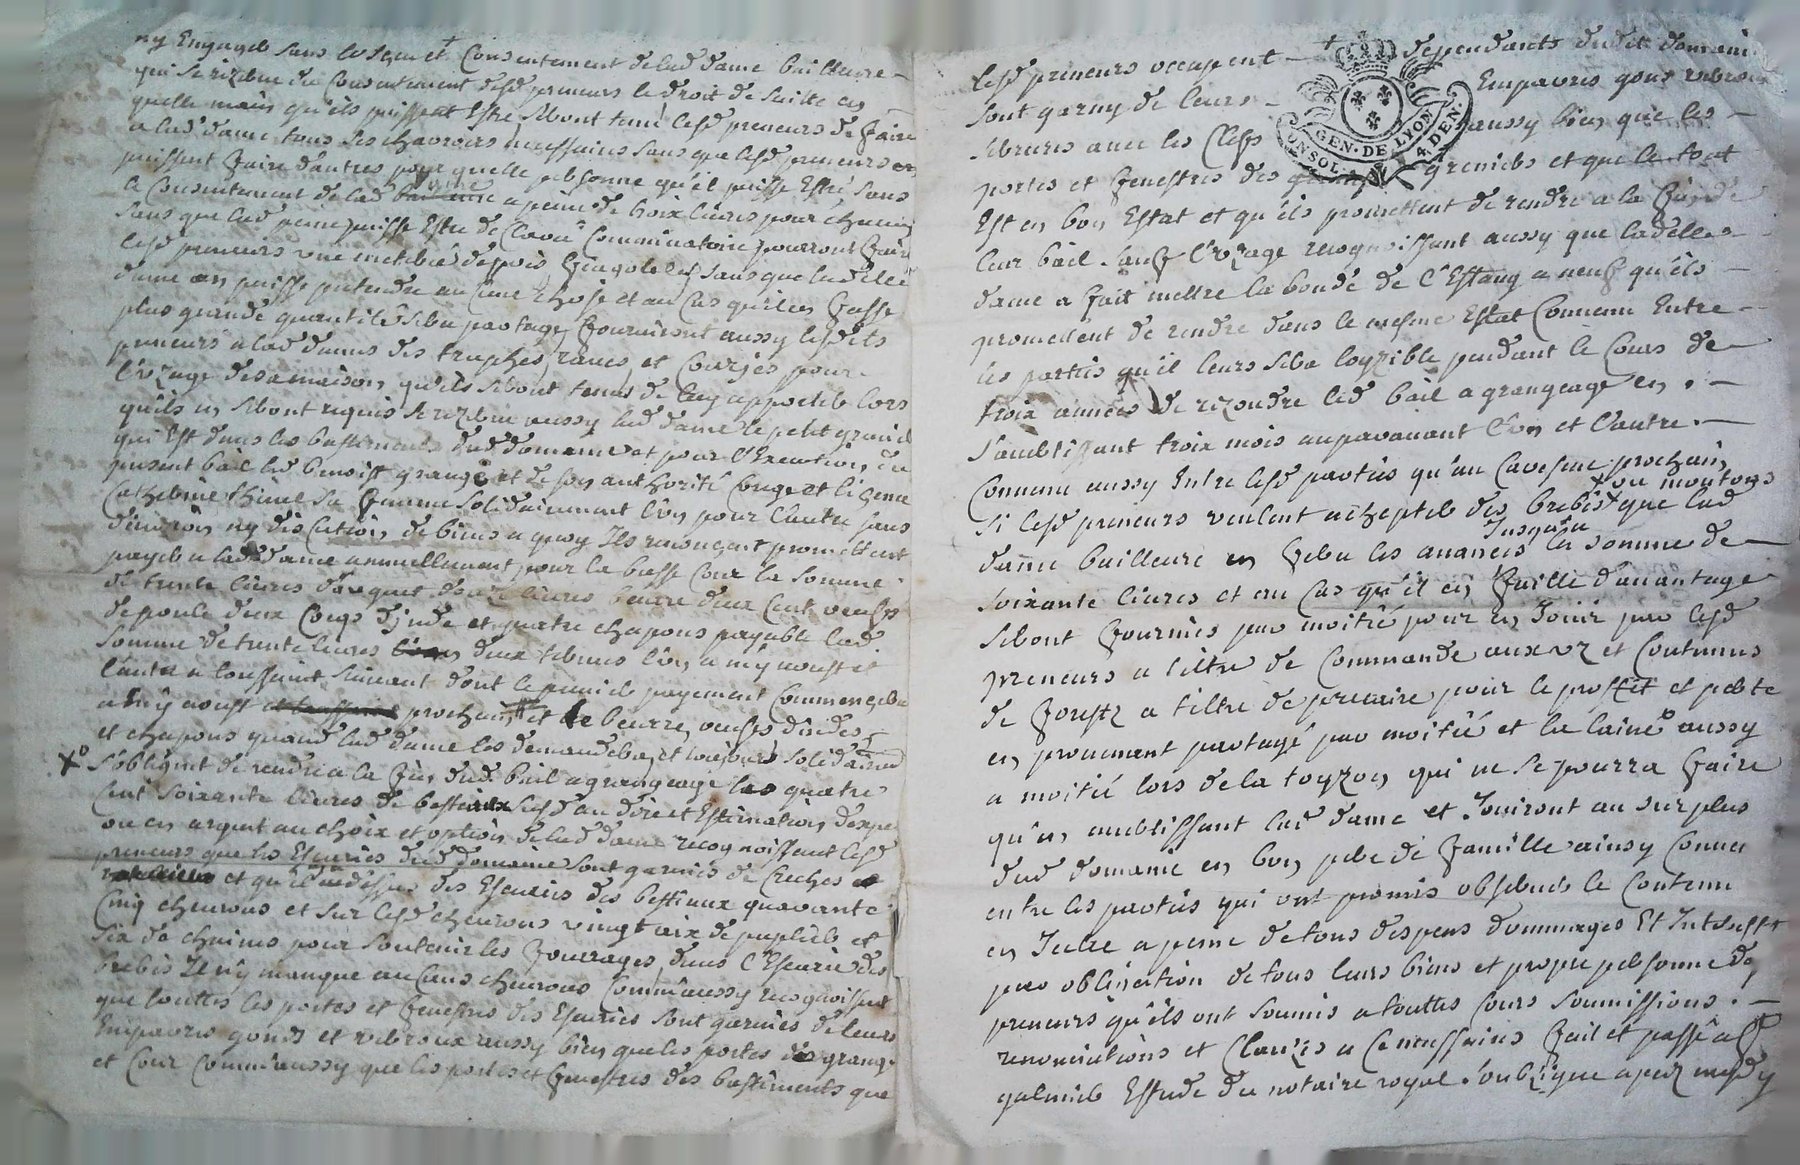 ny Engageb sans le sçeu et + Consentement de lad dame bailleure
qui se rizebue du Consentement desd preneurs le droit de suitte en
quelle main qu'ils puissent Estre sebont tenu lesd preneurs de faire
a lad dame tous les charrois nessessaires sans que lesd preneurs en
puissent faire d'autres pour quelle pebsonne qu'il puisse Estre sans
le Consentement de lad a peine de troix liures pour chacun
sans que lad peine puisse Estre de Clause Comminatoire pourront faire
lesd preneurs une metebée de pois sans que lad
dame en puisse pretendre aucune chose et au Cas qu'il en fasse
plus grande quantité seba partagé fourniront aussy lesdits
preneurs a lad dame des truphes, raues, et Courjes pour
l'vzage de sa maison qu'ils sebont tenus de luy apporteb lors
qu'ils en sebont requis se rezebue aussy lad dame le petit grenié
qui Est dans les bastiments dud domaine et pour l'Execution du
present bail led benoist grange et de son authorité Conge et licence
Cathebine sa femme solidairement l'un pour l'autre sans
diuision ny discution de biens a quoy Ils renonçent promettent
payeb a lad dame annuellement pour la basse Cour la somme
de trente liures d'argent douze liures beurre deux Cent oeufs
de poule deux Coqs d'jnde et quatre chapons payable lad
somme de trente liures en deux tebmes l'un a my aoust et
l'autre a toussaint suiuant dont le premieb payement Commençeba
a my aoust prochain et le beurre, oeufs dindes
et chapons quand lad dame les demandeba et toujours solidaire
x° s'obligent de rendre a la fin dud bail a grangeage les quatre
Cent soixante liures de bestiaux susd au dire et Estimation d'expe
ou en argent au choix et option de lad dame recognoissent lesd
preneurs que les Escuries dud domaine sont garnies de Creches
et qu'il au dessus des Escuries des bestiaux quarante
Cinq cheurons et sur lesd cheurons vingt aix de pupleb et
six de chaines pour soutenir les fourrages, dans l'Escurie des
brebis Il n'y manque aucuns cheurons Comm'aussy recognoissent
que touttes les portes et fenestres des Escuries sont garnies de leurs
Empavres gonds et vebroux aussy bien que les portes des grange
et Cour Comm'aussy que les portes et fenestres des bastiments que
lesd preneurs occupent + dependants dudit domaine
sont garny de leurs Empavres gons vebroux
sebrures auec les Clefs aussy bien que les
portes et fenestres des greniebs et que le tout
Est en bon Estat et qu'ils promettent de rendre a la fin de
leur bail sauf l'vzage recognoissant aussy que ladelle
dame a fait mettre la bonde de l'Estang a neuf qu'ils
promettent de rendre dans le mesme Estat Conuenu Entre
les parties qu'il leurs seba loyzible pendant le Cours de
troix années de rezoudre led bail a grangeage en
s'aubtissant troix mois auparauant l'un et l'autre.
Conuenu aussy Entre lesd parties qu'au Caresme prochain
+ ou moutons
si lesd preneurs veulent achepteb des brebis + que lad
Jusqu'a
dame bailleure en feba les auances la somme de
soixante liures et au Cas qu'il en faille d'auantage
sebont fournies par moitié pour en Jouir par lesd
preneurs a tiltre de Commande aux vz et Coutumes
de foretz a tiltre de precaire pour le proffit et pebte
en prouenant partagé par moitié et la laine aussy
a moitié lors de la toyzon qui ne se pourra faire
qu'en aubtissant lad dame et Jouiront au surplus
dud domaine en bon pebe de famille ainsy Conuen
entre les parties qui ont promis obsebueb le Contenu
en Icelle a peine de tous despens dommages Et Intebests
par obligation de tous leurs biens et propre pebsonne des
preneurs qu'ils ont soumis a touttes Cours soumissions.
renonciations et Clauzes a Ce nessessaires fait et passé a st
galmieb Estude du notaire royal soubzigne apres midy
GEN. DE LYON
4. DEN.